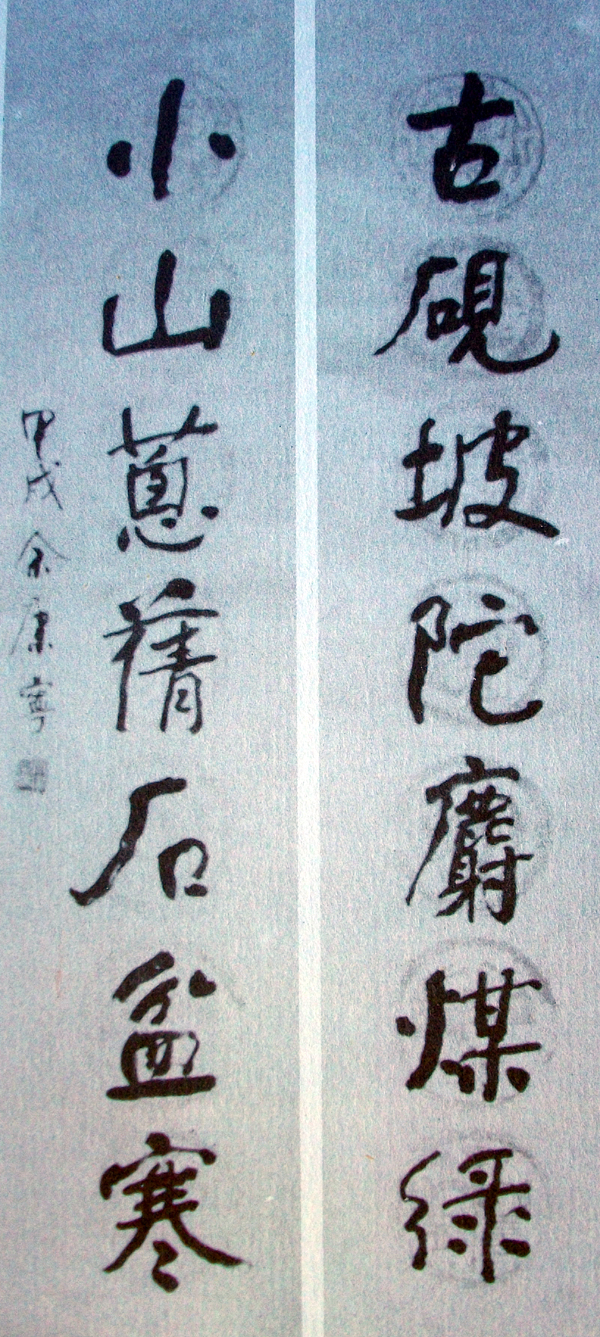 古硯坡陀麝煤綠
小山蔥蒨石盆寒
甲戌余康寧